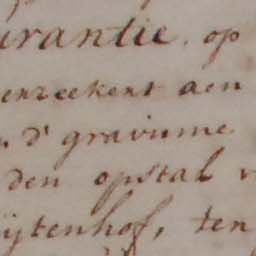 urantie, op
enzeekert aen
d' gravinme
den opstal v
ijtenhof, ten